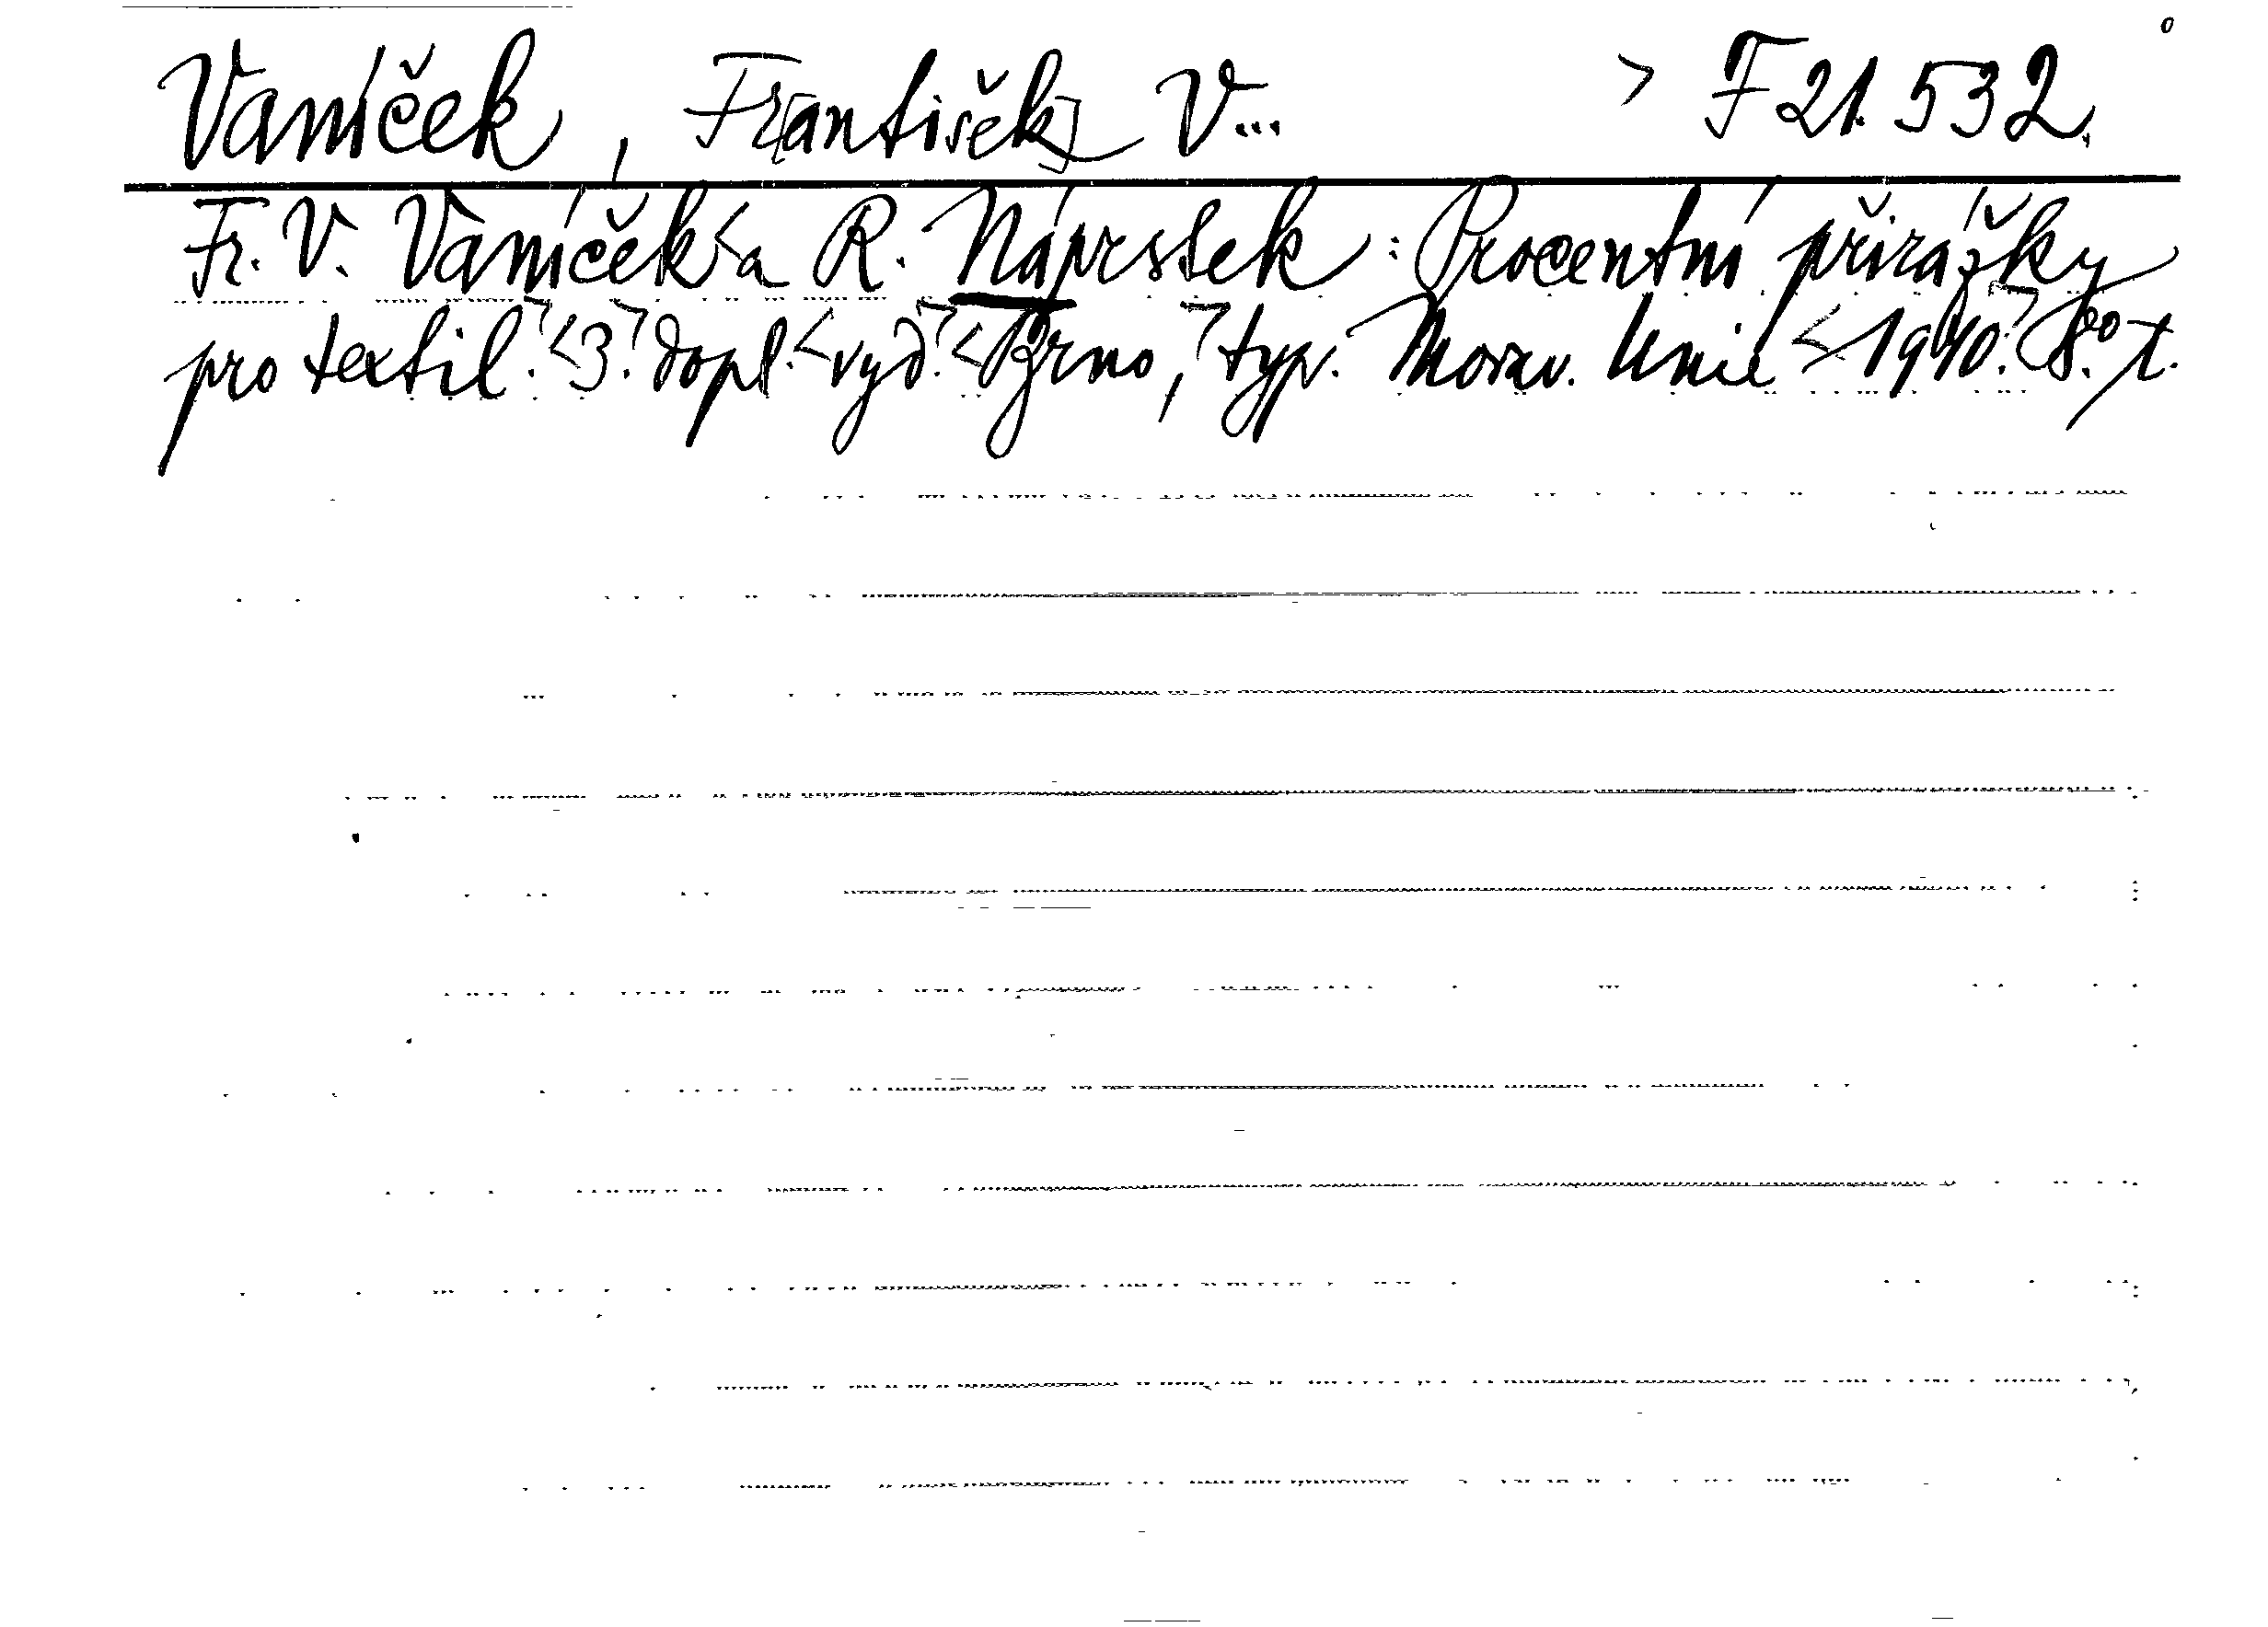 Vaníček, Fr[antišek] V... > F 21.532.
Fr. V. Vaníček < a R. Náprstek : Procentní přirážky
pro textil. > < 3. > dopl. < vyd. > < Brno, > typ. Morav. Unie < 1940. > 8.° t.